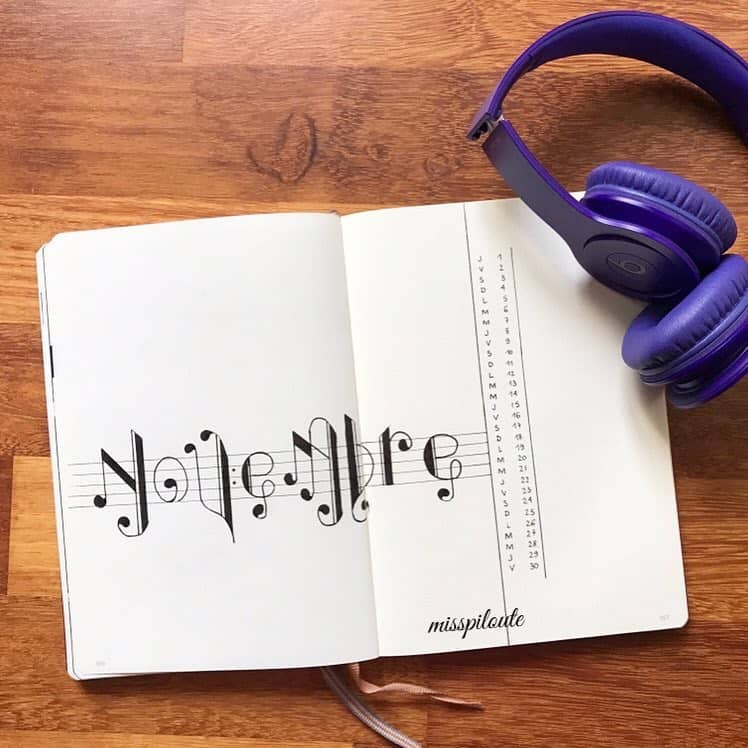 Novembre
J 1
V 2
S 3
D 4
L 5
M 6
M 7
J 8
V 9
S 10
D 11
L 12
M 13
M 14
J 15
V 16
S 17
D 18
L 19
M 20
M 21
J 22
V 23
S 24
D 25
L 26
M 27
M 28
J 29
V 30
misspiloute